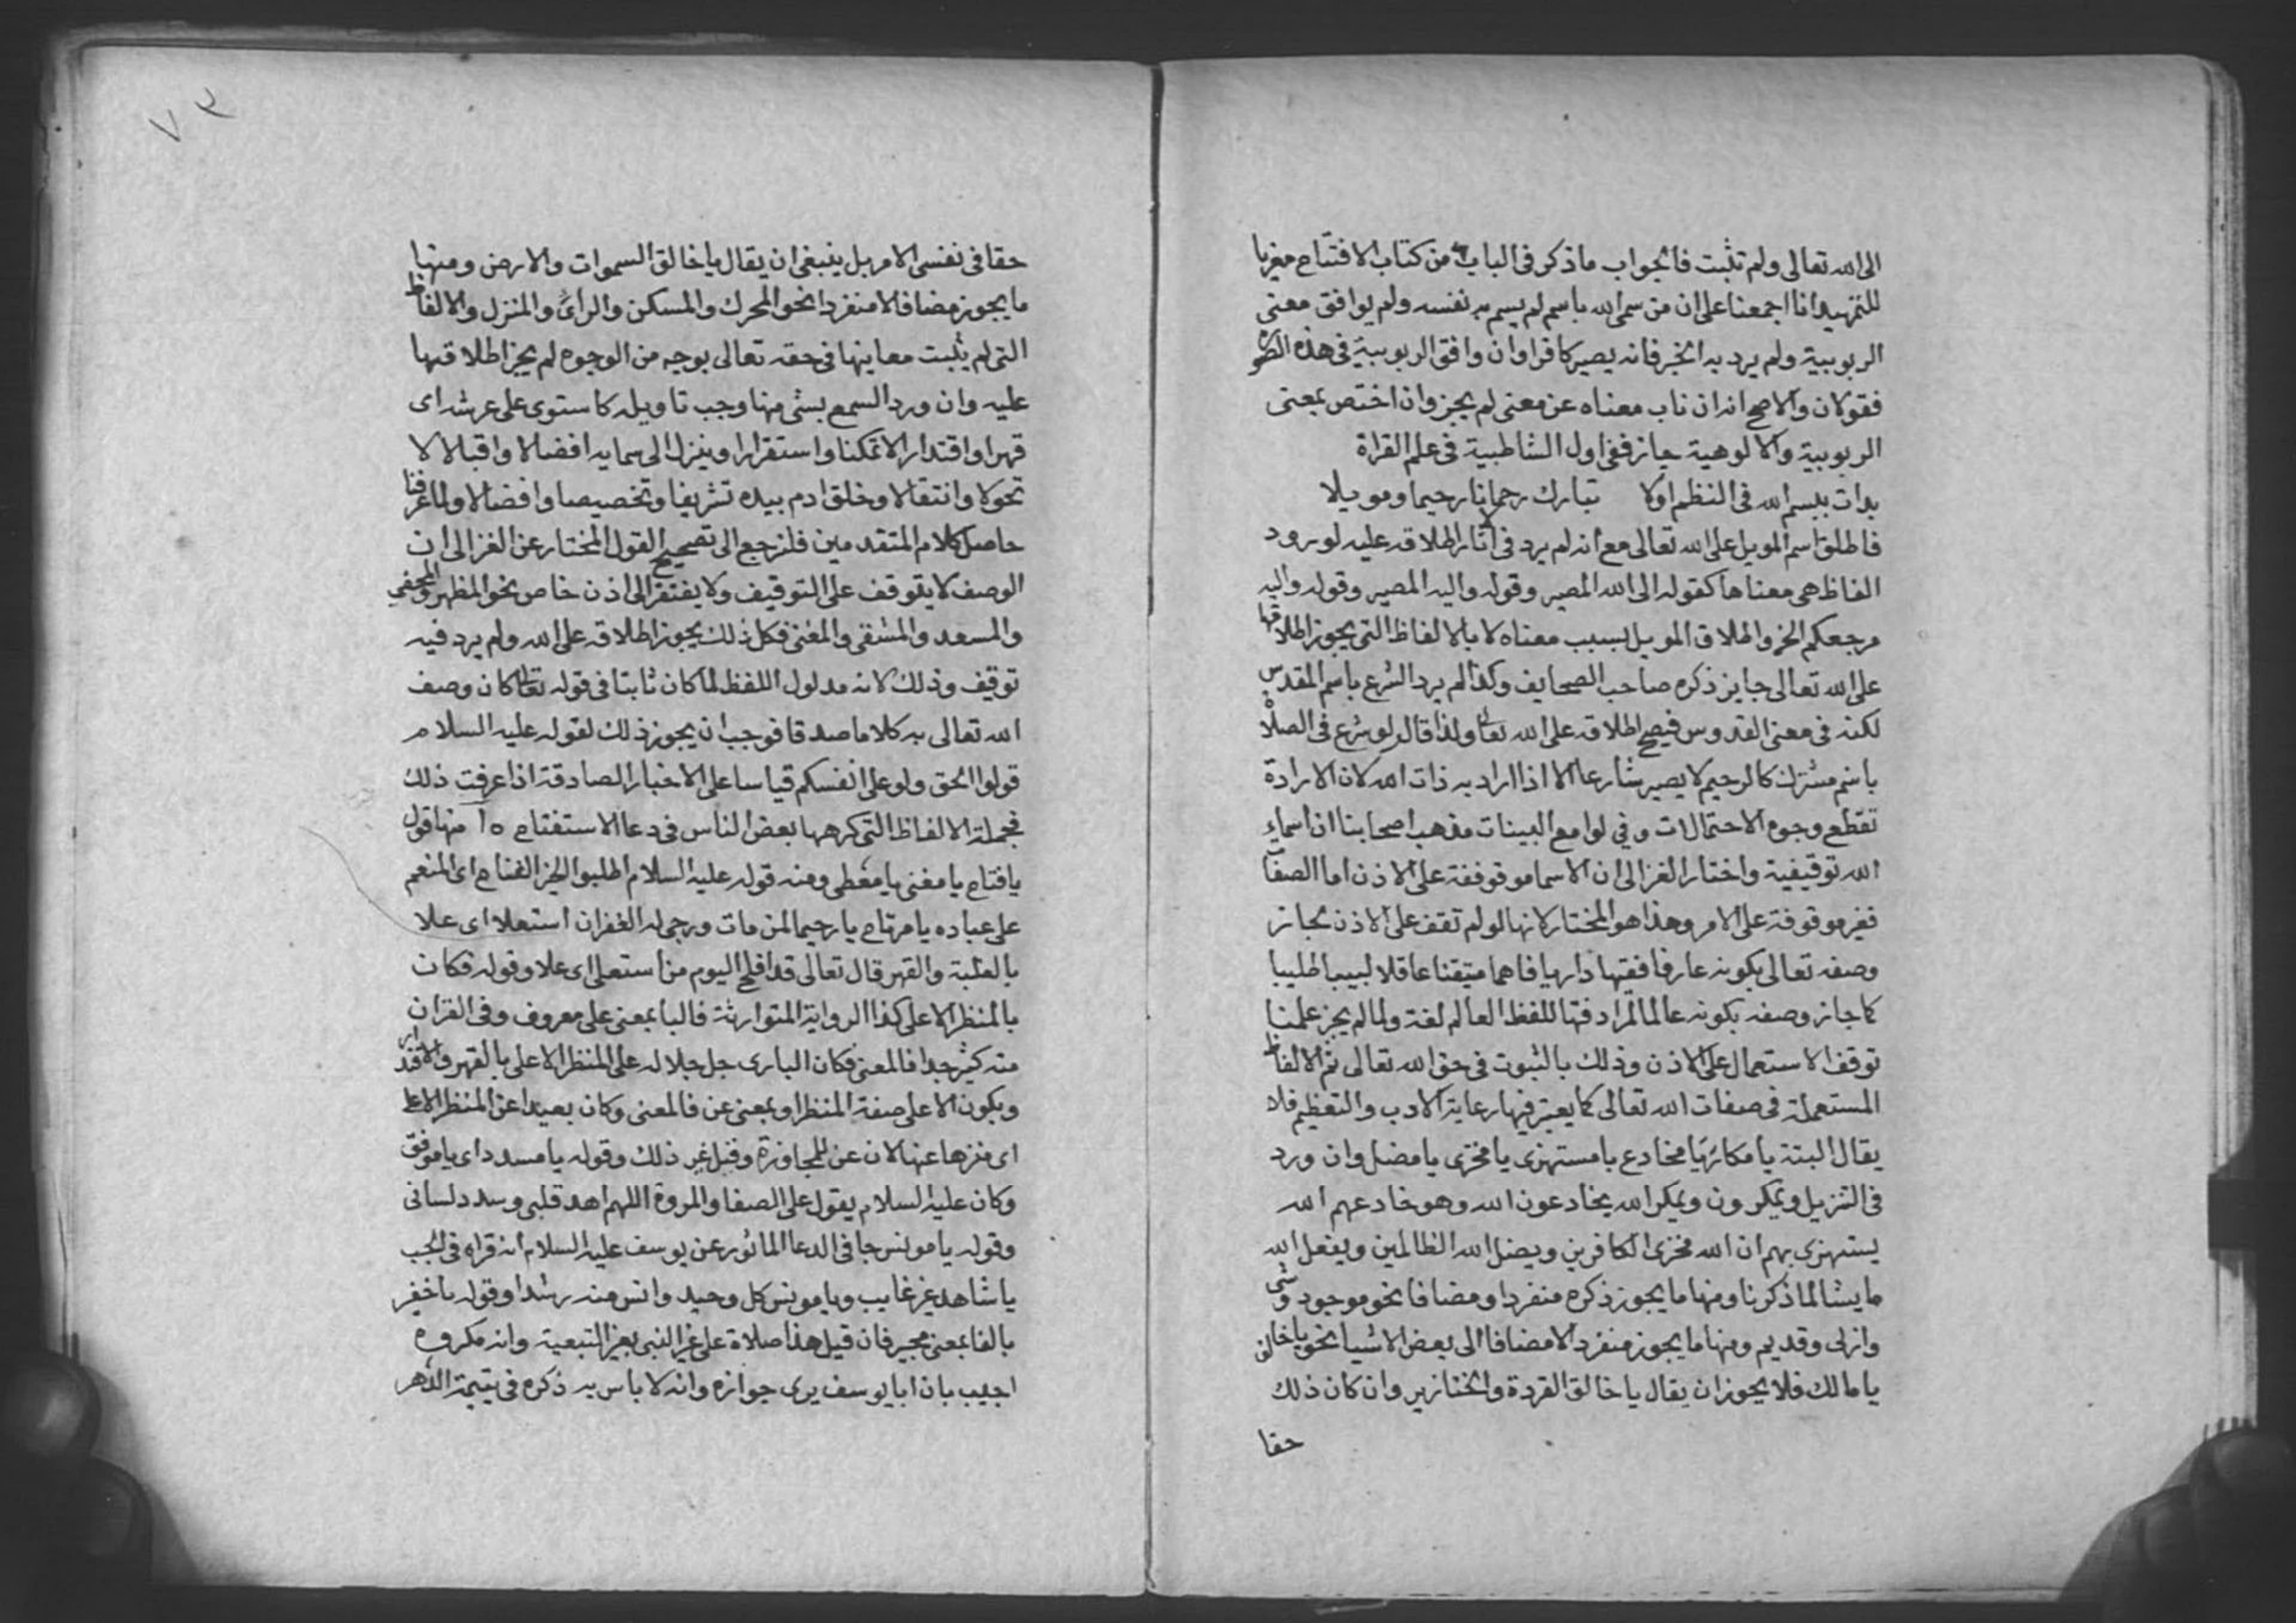 الى الله تعالى ولم تثبت فالجواب ما ذكر فى الباب من كتاب الافتتاح معزيا
للتمهيد انا اجمعنا على ان من سمى الله باسم لم يسم به نفسه ولم يوافق معنى
الربوبية ولم يرد به الخبر فانه يصير كافرا وان وافق الربوبية فى هذه
فقولان والاصح انه ان ناب معناه عن معنى لم يجز وان اختص بمعنى
الربوبية والالوهية جاز ففى اول الشاطبية فى علم القراة
بدات ببسم الله فى النظم اولا تبارك رحمانا رحيما وموئلا
فاطلق اسم الموئل على الله تعالى مع انه لم يرد فى اطلاقه عليه لورود
الفاظ هى معناها كقوله الى الله المصير وقوله واليه المصير وقوله واليه
مرجعكم الخ واطلاق الموئل بسبب معناه لا بالالفاظ التى يجوز اطلاقها
على الله تعالى جايز ذكره صاحب الصحايف وكذا لم يرد الشرع باسم المقدس
لكنه فى معنى القدوس فيصح اطلاقه على الله تعالى ولذا قال لو شرع فى الصلاة
باسم مشترك كالرحيم لا يصير شارعا الا اذا اراد به ذات الله لان الارادة
تقطع وجوه الاحتمالات وفي لوامع البينات مذهب اصحابنا ان اسماء
الله توقيفية واختار الغزالى ان الاسما موقوفة على الاذن اما الصفات
فغير موقوفة على الامر وهذا هو المختار لانها لو لم تقف على الاذن لجاز
وصفه تعالى بكونه عارفا فقيها داريا فاهما متيقنا عاقلا لبيبا طبيبا
كما جاز وصفه بكونه عالما لمرادفتها للفظ العالم لغة ولما لم يجز علمنا
توقف الاستعمال على الاذن وذلك بالثبوت فى حق الله تعالى ثم الالفاظ
المستعملة فى صفات الله تعالى كما يعتبر فيها رعاية الادب والتعظيم فلا
يقال البتة يا مكار يا مخادع يا مستهزى يا مخزى يا مضل وان ورد
فى التنزيل ويمكرون ويمكر الله يخادعون الله وهو خادعهم الله
يستهزى بهم ان الله مخزى الكافرين ويضل الله الظالمين ويفعل الله
ما يشا لما ذكرنا ومنها ما يجوز ذكره منفردا ومضافا نحو موجود وشى
وازلى وقديم ومنها ما يجوز منفردا لا مضافا الى بعض الاشيا نحو يا خالق
يا مالك فلا يجوز ان يقال يا خالق القردة والخنازير وان كان ذلك
حقا
٧٣
حقا فى نفس الامر بل ينبغى ان يقال يا خالق السموات والارض ومنها
ما يجوز مضافا لا منفردا نحو المحرك والمسكن والرائ والمنزل والالفاظ
التى لم يثبت معاينها فى حقه تعالى بوجه من الوجوه لم يجز اطلاقها
عليه وان ورد السمع بشى منها وجب تاويله كاستوى على عرشه اى
قهرا واقتدارا لا تمكنا واستقرارا وينزل الى سمايه افضالا واقبالا لا
تحولا وانتقالا وخلق ادم بيده تشريفا وتخصيصا وافضالا ولما عرفنا
حاصل كلام المتقدمين فلنرجع الى تصحيح القول المختار عن الغزالى ان
الوصف لا يتوقف على التوقيف ولا يفتقر الى اذن خاص نحو المظهر والمخفي
والمسعد والمشقى والمغنى فكل ذلك يجوز اطلاقه على الله ولم يرد فيه
توقيف وذلك لانه مدلول اللفظ لما كان ثابتا فى قوله تعالى كان وصف
الله تعالى به كلاما صدقا فوجب ان يجوز ذلك لقوله عليه السلام
قولوا الحق ولو على انفسكم قياسا على الاخبار الصادقة اذا عرفت ذلك
فجملة الالفاظ التى كرهها بعض الناس فى دعا الاستفتاح ١٥ منها قول
يا فتاح يا مغنى يا معطى ومنه قوله عليه السلام اطلبوا الخير الفتاح اى المنعم
على عباده يا مرتاح يا رحيما لمن مات ورجى له الغفران استعلا اى علا
بالغلبة والقهر قال تعالى قد افلح اليوم من استعلى اى علا وقوله فكان
بالمنظر الاعلى كذا الرواية المتوارثة فالبا بمعنى على معروف وفى القران
منه كثير جدا فالمعنى فكان البارى جل جلاله على المنظر الاعلى بالقهر والاقتدار
ويكون الاعلى صفة المنظر او بمعنى عن فالمعنى وكان بعيدا عن المنظر الاعلى
اى منزها عنها لان عن للمجاوزة وقيل غير ذلك وقوله يا مسدد اى يا موفق
وكان عليه السلام يقول على الصفا والمروة اللهم اهد قلبى وسدد لسانى
وقوله يا مونس جا فى الدعا الماثور عن يوسف عليه السلام انه قراه فى الجب
يا شاهد غير غايب ويا مونس كل وحيد وانس منه رشدا وقوله يا خفير
بالفا بمعنى مجير فان قيل هذا صلاة على غير النبى بغير التبعية وانه مكروه
اجيب بان ابا يوسف يرى جوازه وانه لا باس به ذكره فى يتيمة الدهر